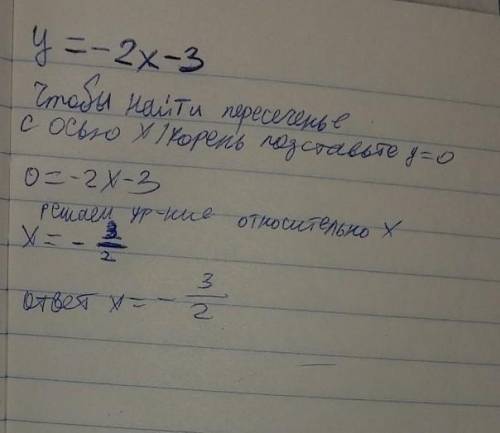 y = -2x - 3
Чтобы найти пересеченье
с осью X/корень подставьте y=0
0 = -2x - 3
решаем ур-ние относительно X
X = - 3/2
ответ x = - 3/2